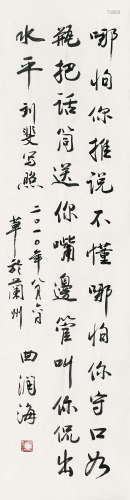 哪怕你推说不懂哪怕你守口如
瓶把话筒送你嘴边管叫你侃出
水平 刘斐写照
二〇一〇年八月六日
草于兰州
曲润海